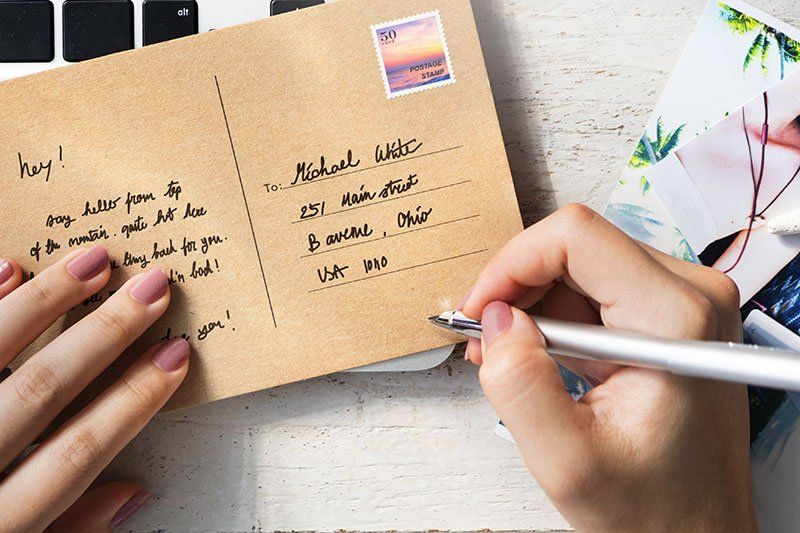 alt
50
CENT
POSTAGE
STAMP
hey!
say hello from top
of the mountain. quite hot here
thing back for you.
all
in bach!
you!
To: Michael White
251 Main street
B avenue, Ohio
USA 1010